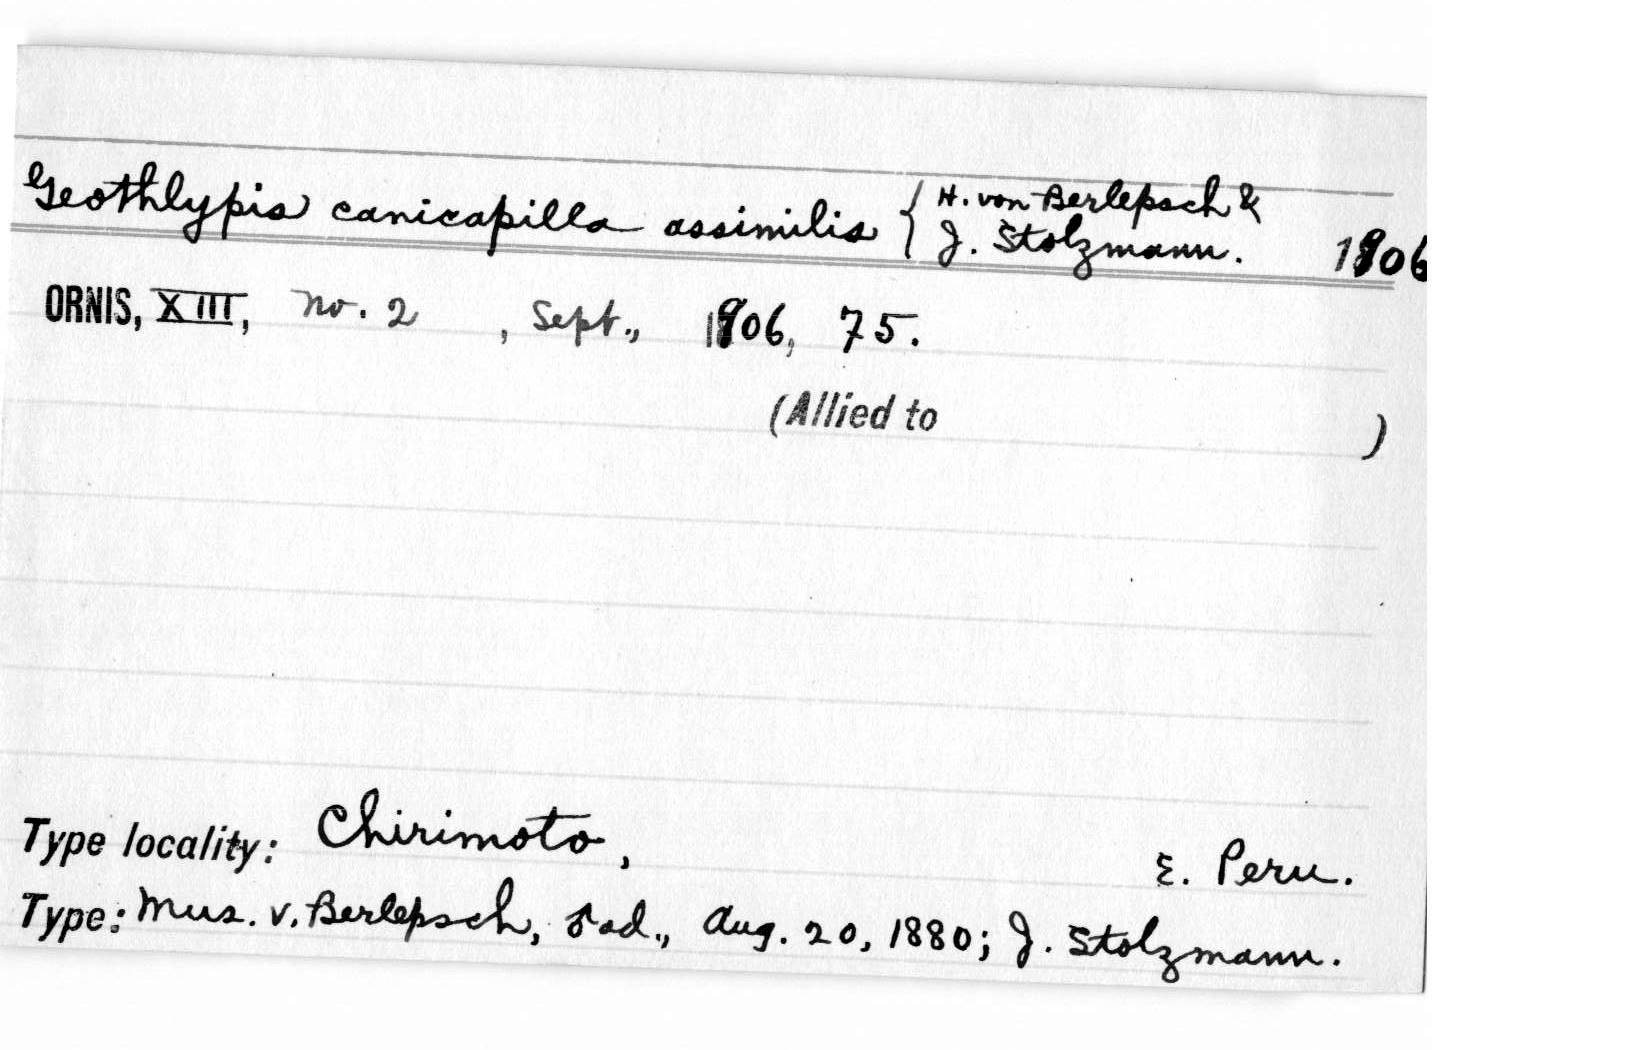 Geothlypis canicapilla assimilis { H. von Berlepsch &
J. Stolzmann. 1906
ORNIS, XIII, no. 2 , Sept., 1906, 75.
(Allied to )
Type locality: Chirimoto, E. Peru.
Type: Mus. v. Berlepsch, ♂ ad., Aug. 20, 1880; J. Stolzmann.